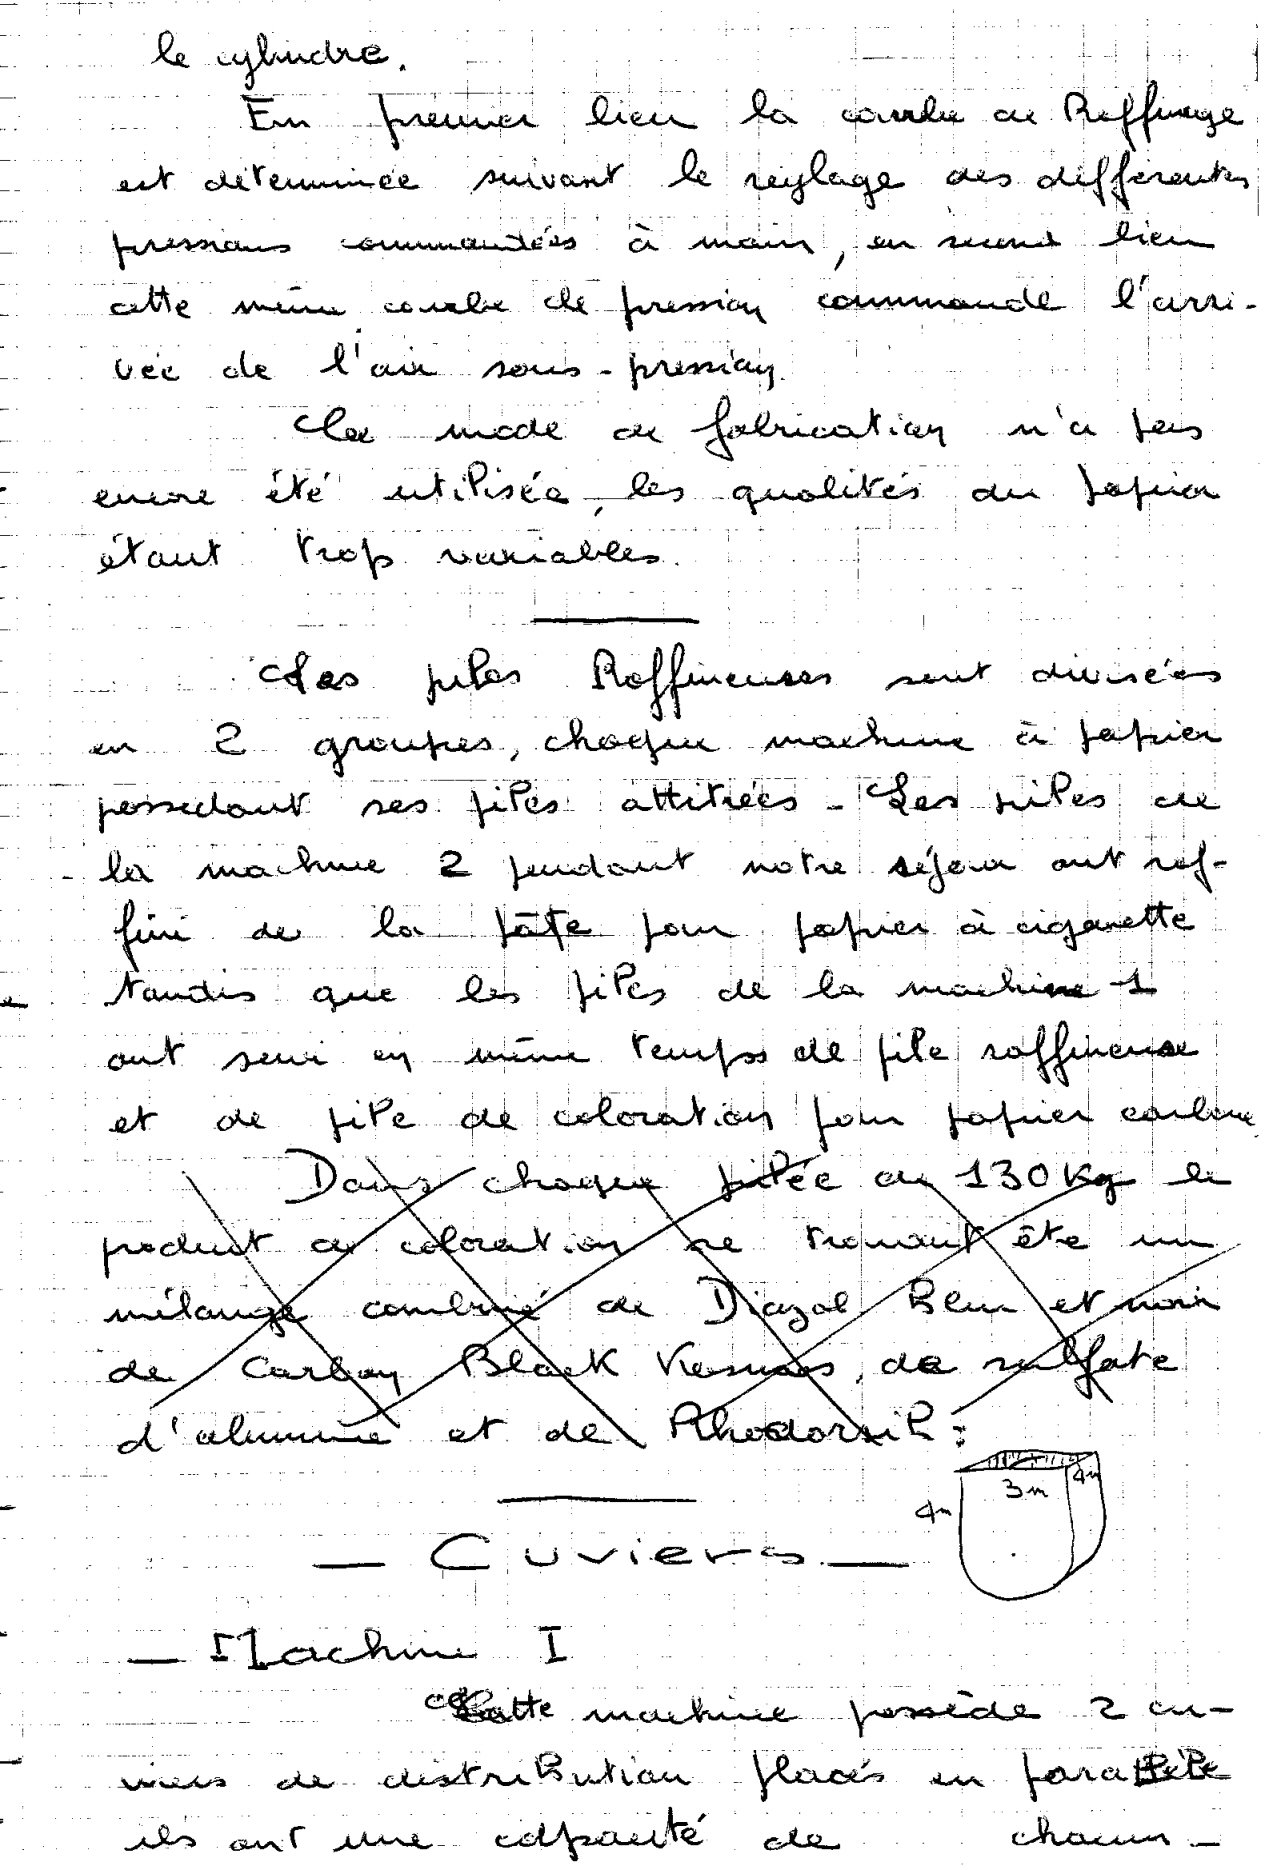 le cylindre.
En premier lieu la courbe de Raffinage
est déterminée suivant le réglage des différentes
pressions commandées à main, en second lieu
cette même courbe de pression commande l'arri-
vée de l'air sous-pression.
Ce mode de fabrication n'a pas
encore été utilisée, les qualités du papier
étant trop variables.
Les piles Raffineuses sont divisées
en 2 groupes, chaque machine à papier
possedant ses piles attitrées - Les piles de
la machine 2 pendant notre séjour ont raf-
finé de la pâte pour papier à cigarette
tandis que les piles de la machine 1
ont servi en même temps de pile raffineuse
et de pile de coloration pour papier carbone
Dans chaque pilée de 130 Kg le
produit de coloration se trouvant être un
mélange combiné de Diazol Bleu et noir
de Carbon Black, de sulfate
d'alumine et de Rhodorsil :
3m 4m
4m
— Cuviers —
— Machine I
Cette machine possède 2 cu-
viers de distribution placés en parallèle
ils ont une capacité de chacun -